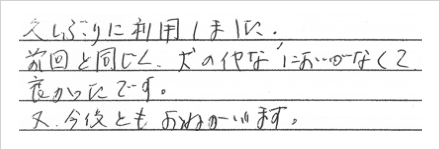 久しぶりに利用しました.
前回と同じく、犬のイヤなにおいがなくて
良かったです。
又、今後ともおねがいします。